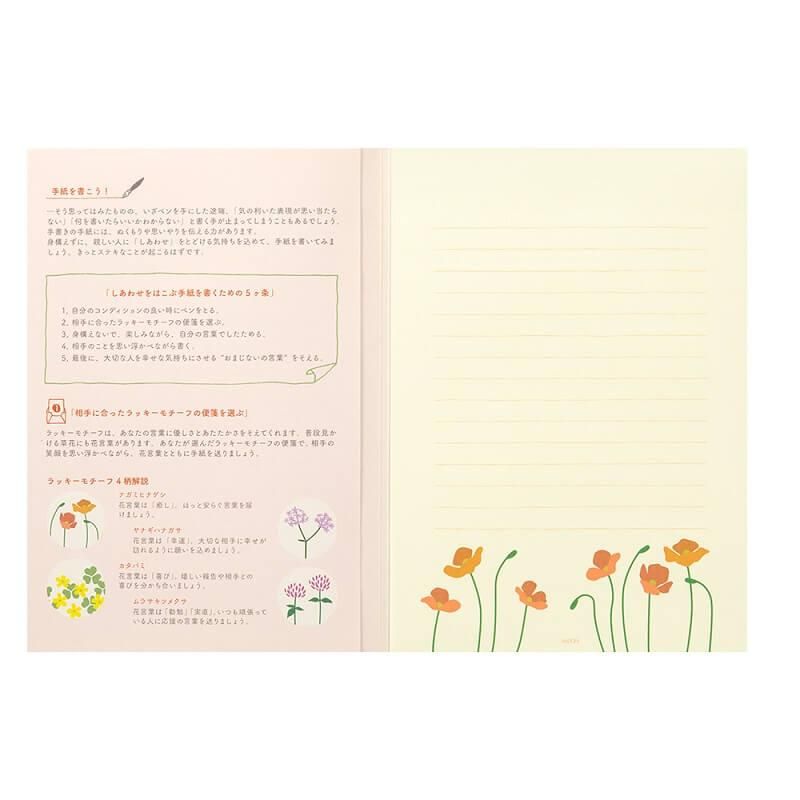 手紙を書こう！
…そう思ってはみたものの、いざペンを手にした途端、「気の利いた表現が思い当たら
ない」「何を書いたらいいかわからない」と書く手が止まってしまうこともあるでしょう。
手書きの手紙には、ぬくもりや思いやりを伝える力があります。
身構えずに、親しい人に「しあわせ」をとどける気持ちを込めて、手紙を書いてみま
しょう。きっとステキなことが起こるはずです。
「しあわせをはこぶ手紙を書くための５ヶ条」
1. 自分のコンディションの良い時にペンをとる。
2. 相手に合ったラッキーモチーフの便箋を選ぶ。
3. 身構えないで、楽しみながら、自分の言葉でしたためる。
4. 相手のことを思い浮かべながら書く。
5. 最後に、大切な人を幸せな気持ちにさせる“おまじないの言葉”をそえる。
「相手に合ったラッキーモチーフの便箋を選ぶ」
ラッキーモチーフは、あなたの言葉に優しさとあたたかさをそえてくれます。普段見か
ける草花にも花言葉があります。あなたが選んだラッキーモチーフの便箋で、相手の
笑顔を思い浮かべながら、花言葉とともに手紙を送りましょう。
ラッキーモチーフ４柄解説
ナガミヒナゲシ
花言葉は「癒し」。ほっと安らぐ言葉を届
けましょう。
ヤナギハナガサ
花言葉は「幸運」。大切な相手に幸せが
訪れるように願いを込めましょう。
カタバミ
花言葉は「喜び」。嬉しい報告や相手との
喜びを分かち合いましょう。
ムラサキツメクサ
花言葉は「勤勉」「実直」。いつも頑張って
いる人に応援の言葉を送りましょう。